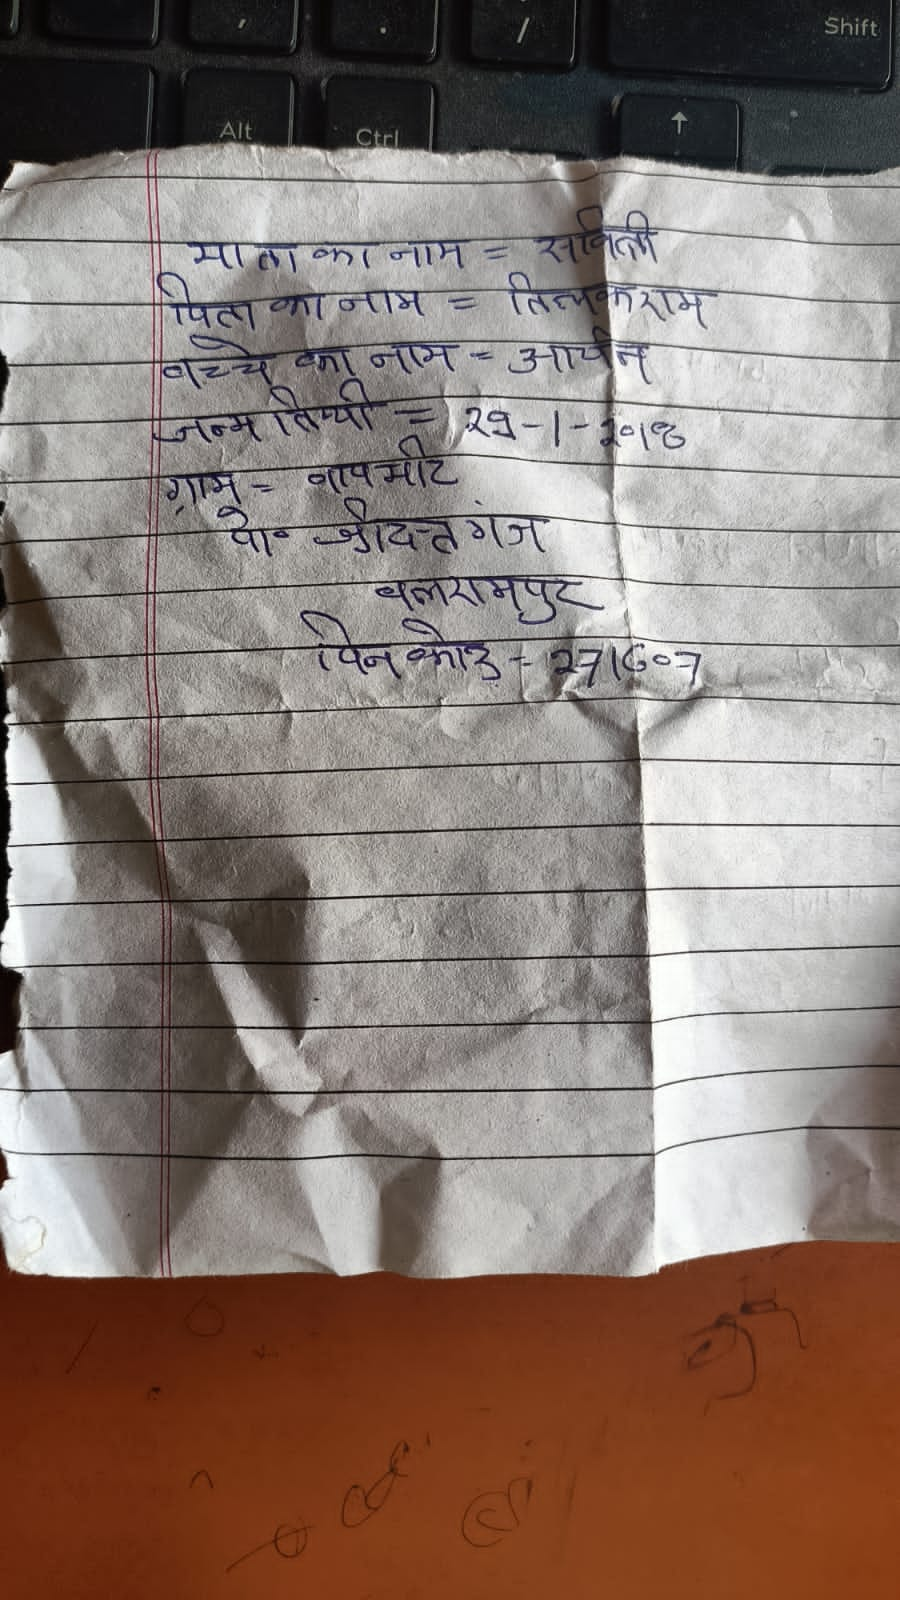 /
Shift
Alt
Ctrl
↑
माता का नाम = सवित्री
पिता का नाम = तिलकराम
बच्चे का नाम - आर्यन
जन्म तिथी = 29-1-2018
ग्राम =
पो० श्रीदत्त गंज
बलरामपुर
पिन कोड - 271607